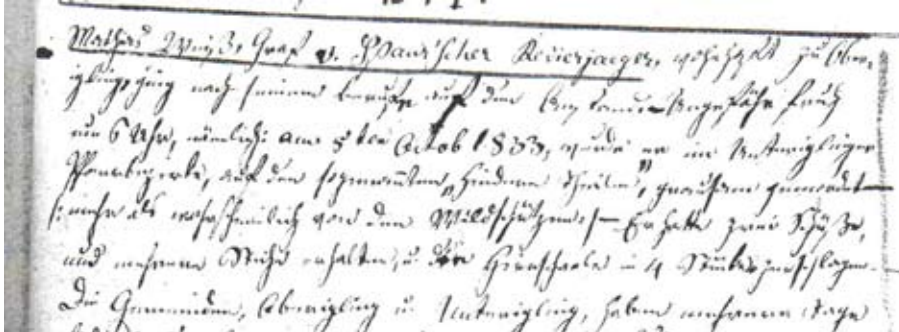 Mathias Weiß, Graf v. Spaur'scher Revierjaeger, wohnhaft zu Ober-
igling, ging nach seinem Berufe auf den ungefähr früh
um 6 Uhr, nämlich: am 8ten Octob 1833, wurde er im Unteriglinger
Pfarrbezirke, auf den sogenannten „hinderen Theilen", grausam gemordet—
/: mehr als wahrscheinlich von den Wildschützen :/— Er hatte zwei Schüße,
und mehrere Stiche erhalten, u. die Hirnschaale in 4 Stücke zerschlagen.—
Die Gemeinden, Oberigling u. Unterigling, haben mehrere Tage